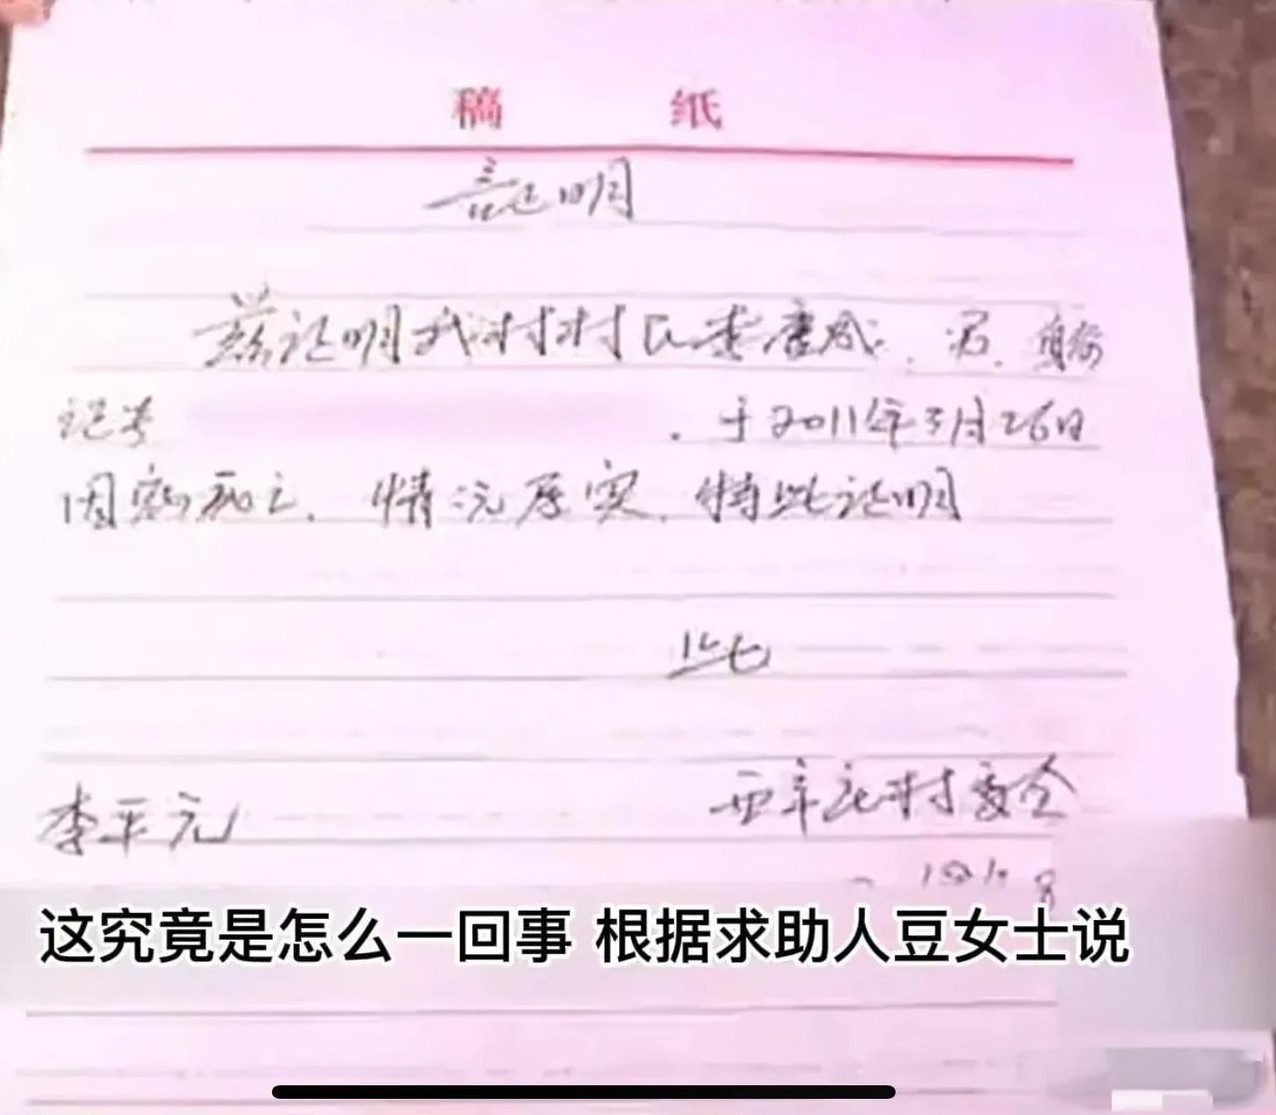 稿 纸
証明
兹证明我村村民李 成, 男, 身份
证号 , 于2011年3月26日
因病死亡, 情况属实, 特此证明
此
李平元 西辛庄村委会
这究竟是怎么一回事 根据求助人豆女士说